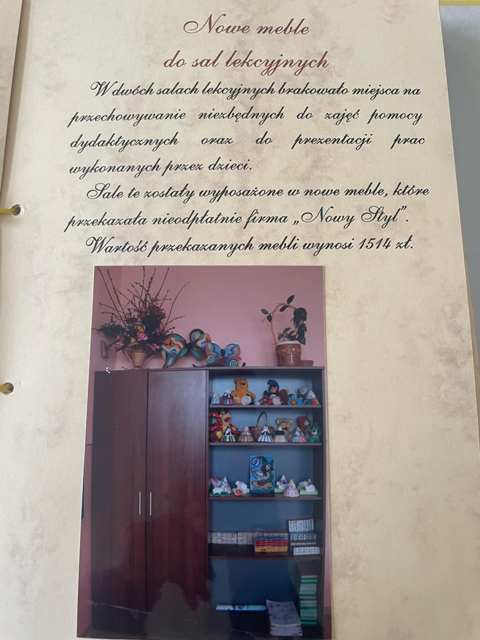 Nowe meble
do sal lekcyjnych
W dwóch salach lekcyjnych brakowało miejsca na
przechowywanie niezbędnych do zajęć pomocy
dydaktycznych oraz do prezentacji prac
wykonanych przez dzieci.
Sale te zostały wyposażone w nowe meble, które
przekazała nieodpłatnie firma „Nowy Styl”.
Wartość przekazanych mebli wynosi 1514 zł.